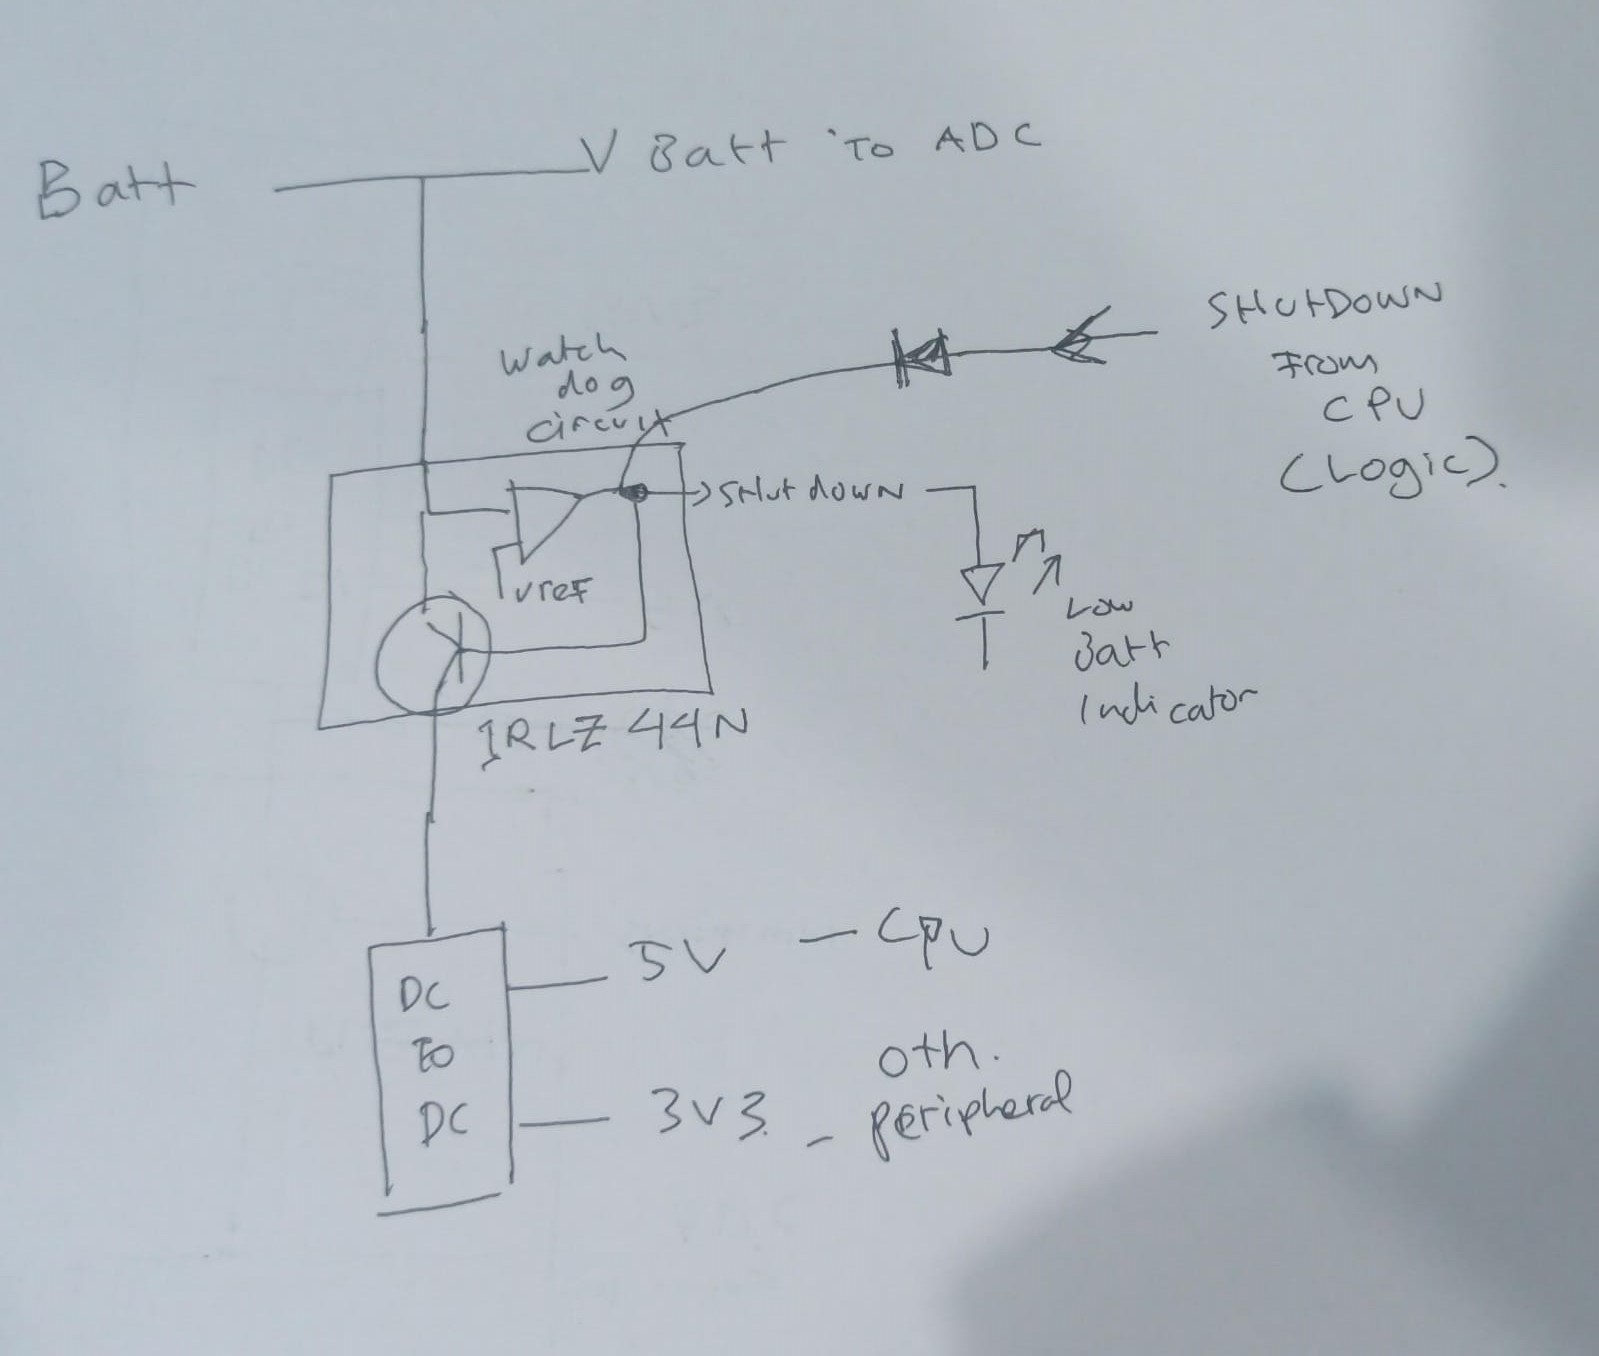 Batt
V Batt To ADC
SHutDOWN
From
CPU
(Logic).
Watch
dog
circuit
SHut doWN
vref
Low
Batt
Indicator
IRLZ 44N
DC
to
DC
5V - CPU
oth.
3V3 - peripheral